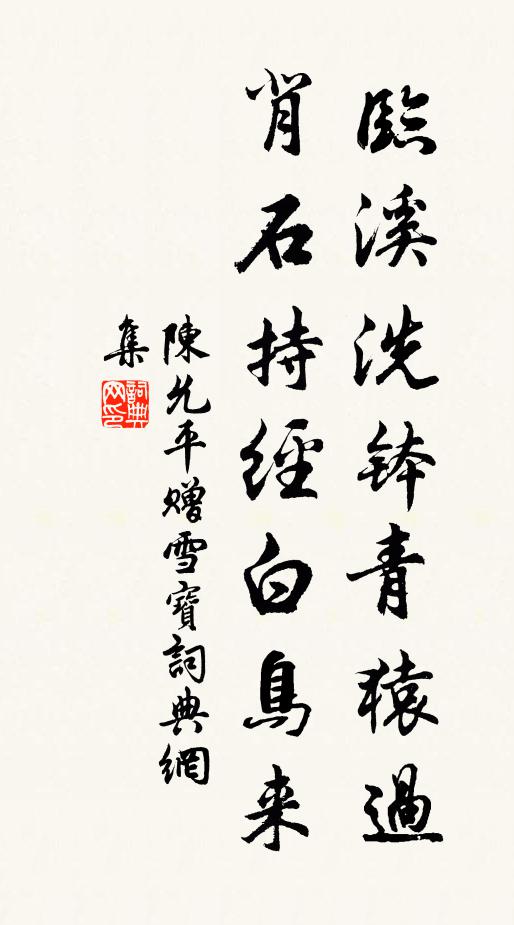 臨溪洗鉢青猿過
背石持經白鳥来
陳允平贈雪寶詞典網
集
詞典网印